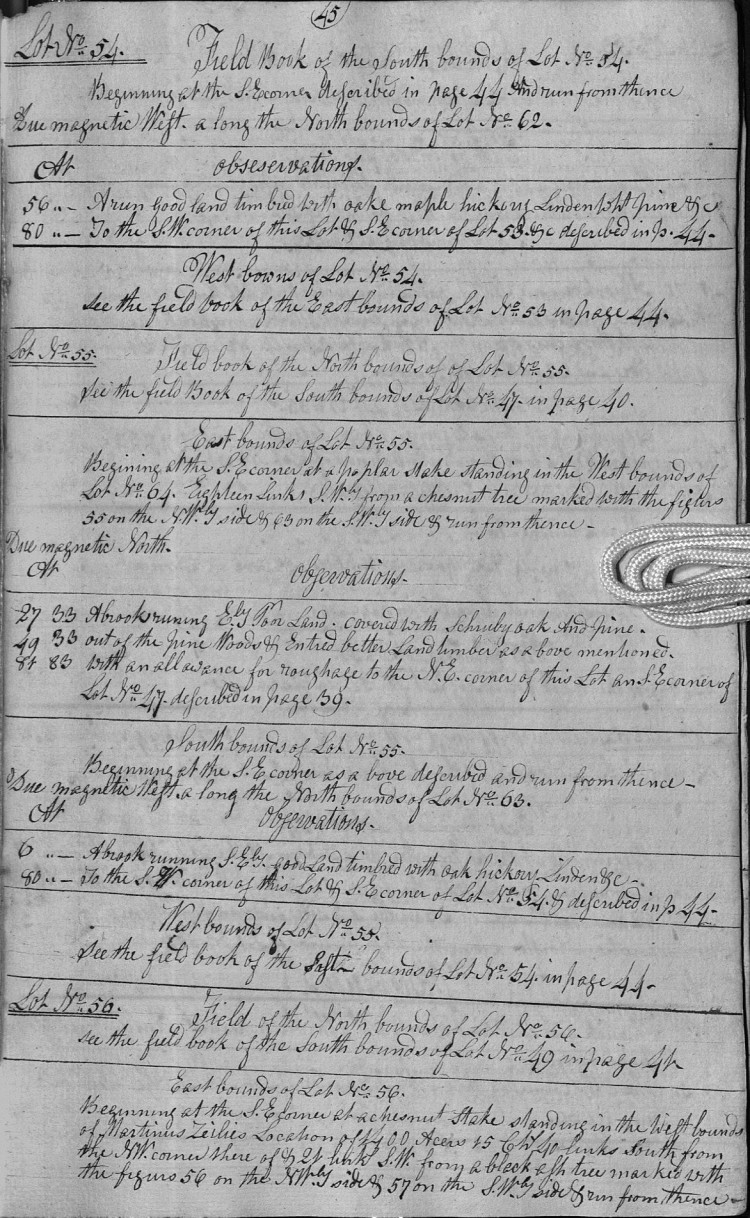 45
Lot No. 54.
Field Book of the South bounds of Lot No. 54.
Beginning at the S.E corner described in page 44 And run from thence
Due magnetic West. a long the North bounds of Lot No. 62.
At obseservations.
56 „ — A run good land timbred with oake maple hickory Linden wht pine &c
80 „ — To the S.W. corner of this Lot & S.E corner of Lot 53. &c described in p. 44-
West bowns of Lot No. 54.
see the field book of the East bounds of Lot No. 53 in page 44.
Lot No. 55.
Field book of the North bounds of of Lot No. 55.
see the field Book of the South bounds of Lot No. 47. in page 40.
East bounds of Lot No. 55.
Begining at the S.E corner at a poplar stake standing in the West bounds of
Lot No. 64. Eighteen links S.Wly from a chesnut tree marked with the figurs
55 on the N.Wly side & 63 on the S.Wly side & run from thence -
Due magnetic North.
At Observations-
27 33 A brook runing Ely Poor Land. covered with Schruby oak And pine.
49 33 out of the pine Woods & Entred better Land timber as above mentioned.
81 83 with an allowance for roughage to the N.E. corner of this Lot an S.E corner of
Lot No. 47. described in page 39.
South bounds of Lot No. 55.
Beginning at the S.E corner as a bove described and run from thence -
Due magnetic West. a long the North bounds of Lot No. 63.
At Observations.
6 „ — A brook running S.Ely. good Land timbred with oak hickory Linden &c -
80 „ — To the S.W. corner of this Lot & S.E corner of Lot No. 54. & described in p 44-
West bounds of Lot No. 55.
see the field book of the East bounds of Lot No. 54. in page 44-
Lot No. 56.
Field of the North bounds of Lot No. 56.
see the field book of the South bounds of Lot No. 49 in page 41
East bounds of Lot No. 56.
Beginning at the S.E corner at a chesnut Stake standing in the West bounds
of Martinus Zeilies Location of 400 Acers 15 Ch 40 links South from
the N.W. corner there of & 21 links S.W. from a black ash tree marked with
the figurs 56 on the N.Wly side & 57 on the S.Wly side & run from thence -